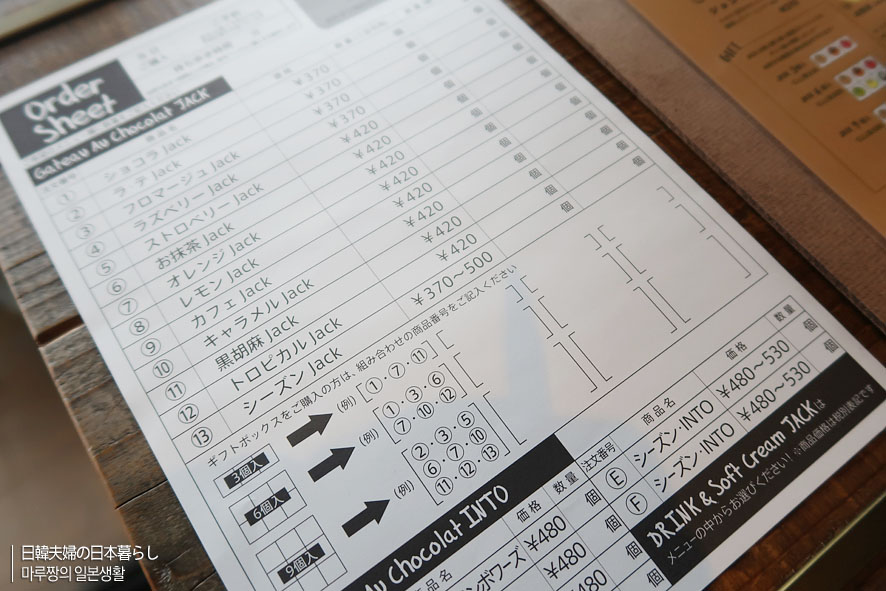 Order Sheet
Gateau Au Chocolat JACK
商品名
価格
① ショコラ Jack ¥370 個
② ラテ Jack ¥370 個
③ フロマージュ Jack ¥370 個
④ ラズベリー Jack ¥370 個
⑤ ストロベリー Jack ¥420 個
⑥ お抹茶 Jack ¥420 個
⑦ オレンジ Jack ¥420 個
⑧ レモン Jack ¥420 個
⑨ カフェ Jack ¥420 個
⑩ キャラメル Jack ¥420 個
⑪ 黒胡麻 Jack ¥420 個
⑫ トロピカル Jack ¥420 個
⑬ シーズン Jack ¥370～500 個
ギフトボックスをご購入の方は、組み合わせの商品番号をご記入ください
3個入 (例) [①・⑦・⑪]
6個入 (例) [①・③・⑥
⑦・⑩・⑫]
9個入 (例) [②・③・⑤
⑥・⑦・⑩
⑪・⑫・⑬]
Au Chocolat INTO
商品名 価格 数量
ンボワーズ ¥480 個
¥480 個
¥480 個
注文番号 商品名 価格 数量
Ⓔ シーズン・INTO ¥480～530 個
Ⓕ シーズン・INTO ¥480～530 個
DRINK & Soft Cream JACKは
メニューの中からお選びください！※商品価格は税別表記です
日韓夫婦の日本暮らし
마루짱의 일본생활